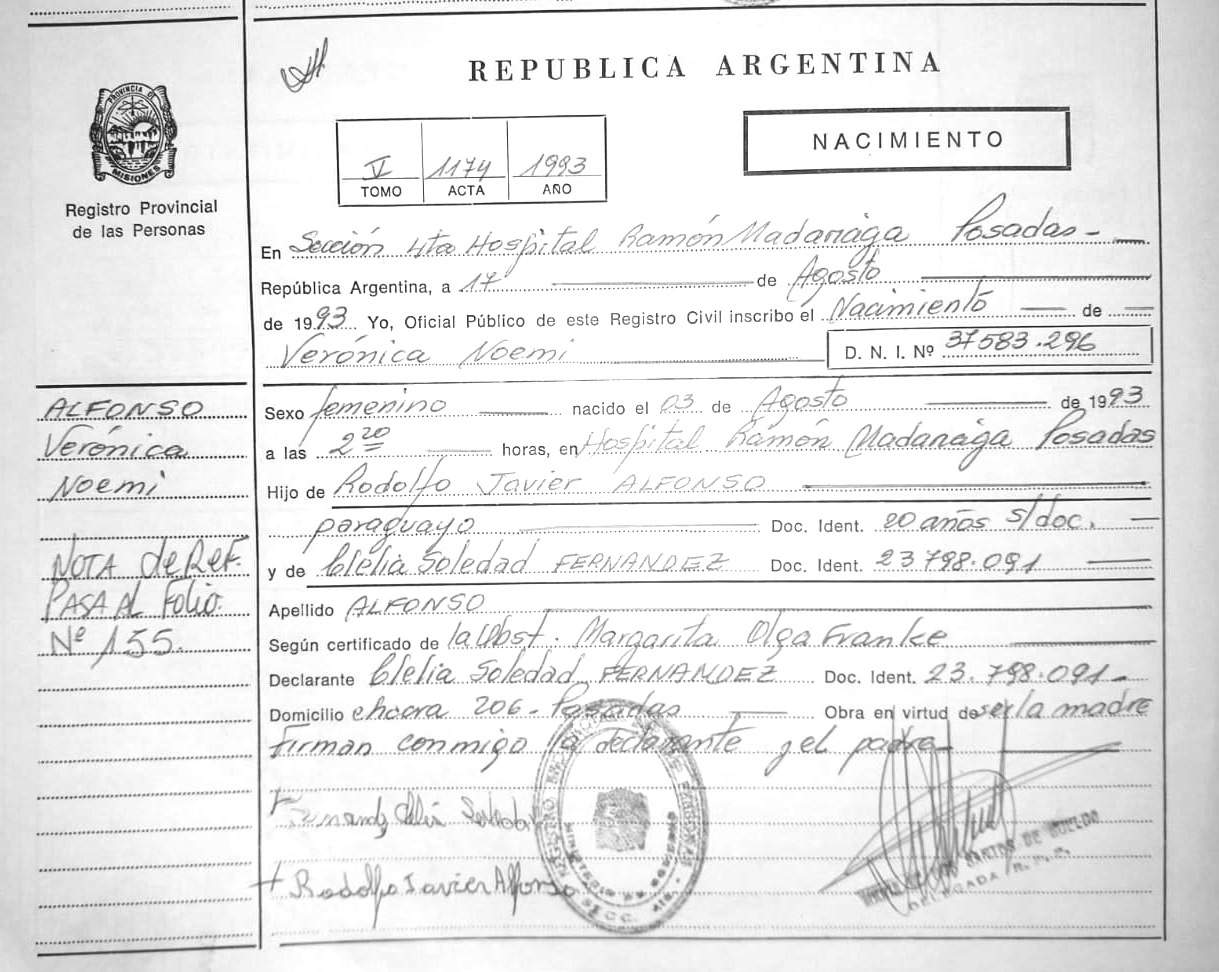 REPUBLICA ARGENTINA
PROVINCIA DE
MISIONES
Registro Provincial
de las Personas
NACIMIENTO
V 1174 1993
TOMO ACTA AÑO
En Sección 4ta Hospital Ramón Madariaga Posadas -
República Argentina, a 17 de Agosto
de 1993 Yo, Oficial Público de este Registro Civil inscribo el Nacimiento de
Verónica Noemi D. N. I. Nº 37583.296
ALFONSO
Verónica
Noemi
NOTA de Ref.
PASA AL Folio
Nº 155.
Sexo femenino nacido el 03 de Agosto de 1993
a las 2 20 horas, en Hospital Ramón Madariaga Posadas
Hijo de Rodolfo Javier ALFONSO
paraguayo Doc. Ident. 20 años s/doc.
y de Clelia Soledad FERNANDEZ Doc. Ident. 23.798.091
Apellido ALFONSO
Según certificado de la Obst. Margarita Olga Franke
Declarante Clelia Soledad FERNANDEZ Doc. Ident. 23.798.091 -
Domicilio chacra 206 - Posadas Obra en virtud de ser la madre
Firman conmigo la declarante y el padre
Rodolfo Javier Alfonso
DELEGADA R. P. P.